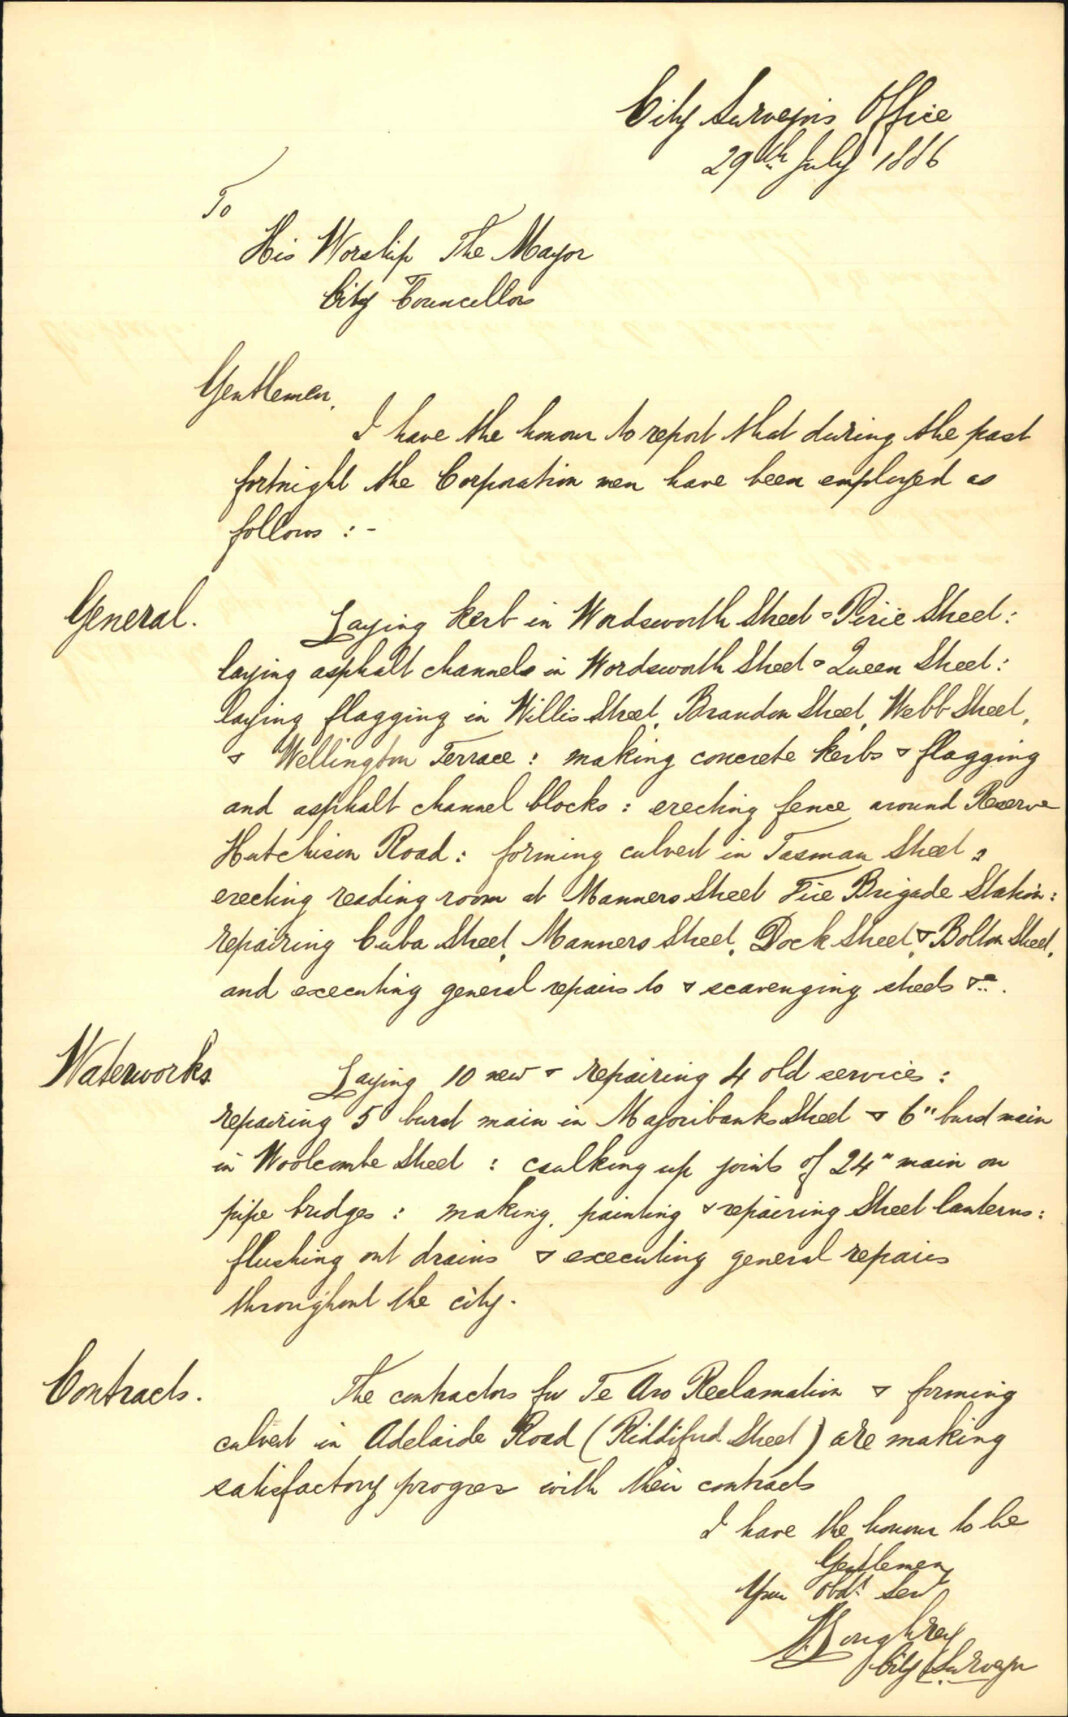 City Surveyors Office
29th July 1886
To
His Worship The Mayor
& City Councillors
Gentlemen,
I have the honour to report that during the past
fortnight the Corporation men have been employed as
follows :-
General. Laying kerb in Wordsworth Street & Pirie Street :
laying asphalt channels in Wordsworth Street & Queen Street :
laying flagging in Willis Street, Brandon Street, Webb Street,
& Wellington Terrace : making concrete kerbs & flagging
and asphalt channel blocks : erecting fence around Reserve
Hutchison Road : forming culvert in Tasman Street :
erecting reading room at Manners Street Fire Brigade Station :
repairing Cuba Street, Manners Street, Dock Street, & Bolton Street,
and executing general repairs to & scavenging streets &c.
Waterworks Laying 10 new & repairing 4 old services :
repairing 5" burst main in Majoribanks Street & 6" burst main
in Woolcombe Street : caulking up joints of 24" main on
pipe bridges : making, painting & repairing Street lanterns :
flushing out drains & executing general repairs
throughout the city.
Contracts. The contractors for Te Aro Reclamation & forming
culvert in Adelaide Road (Riddiford Street) are making
satisfactory progress with their contracts
I have the honour to be
Gentlemen
Your Obdt Servt
Loughrey
City Surveyor